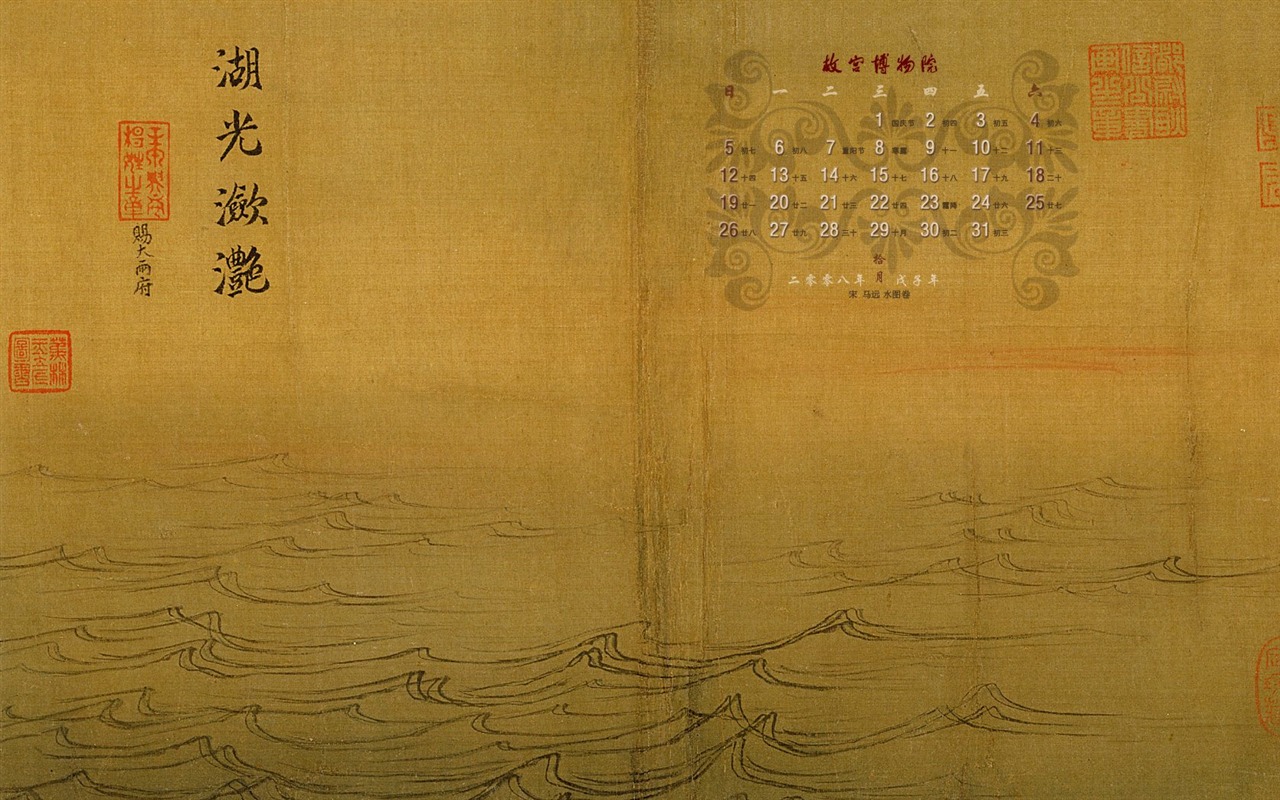 湖光瀲灩
賜大兩府
故宫博物院
日 一 二 三 四 五 六
1 国庆节 2 初四 3 初五 4 初六
5 初七 6 初八 7 重阳节 8 寒露 9 十一 10 十二 11 十三
12 十四 13 十五 14 十六 15 十七 16 十八 17 十九 18 二十
19 廿一 20 廿二 21 廿三 22 廿四 23 霜降 24 廿六 25 廿七
26 廿八 27 廿九 28 三十 29 十月 30 初二 31 初三
二零零八年 拾月 戊子年
宋 马远 水图卷